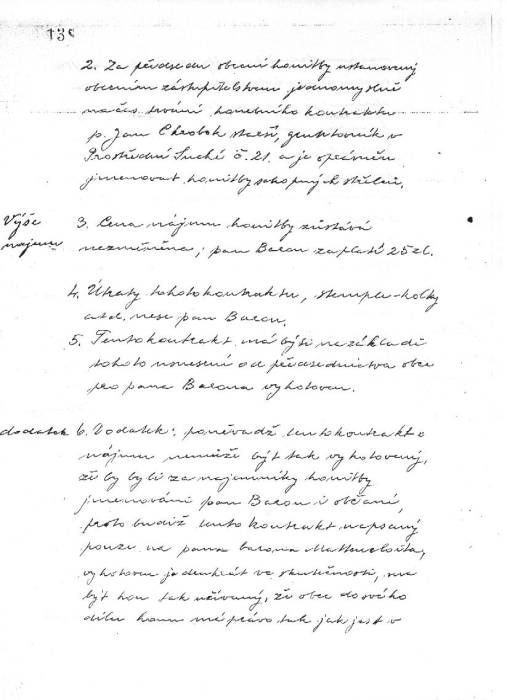 139
2. Za předsedu obecní honitby ustanovený
obecním zastupitelstvem jednomyslně
na čas trvání honebního kontraktu
p. Jan Chrobok starší, gruntovník v
Prostřední Suché č. 21. a je oprávněn
jmenovat honitby schopných střelců.
Výše
nájmu
3. Cena nájmu honitby zůstává
nezměněna; pan Baron zaplatí 25 zl.
4. Útraty tohoto kontraktu, stemple-kolky
atd. nese pan Baron.
5. Tento kontrakt má býti na základě
tohoto usnesení od předsednictva obce
pro pana Barona vyhotoven.
dodatek 6. Dodatek: poněvadž tento kontrakt o
nájmu nemůže být tak vyhotovený,
že by byli za najemníky honitby
jmenováni pan Baron i občané,
proto budiž tento kontrakt napsaný
pouze na pana barona
vyhotoven jedenkrát ve skutečnosti, má
být hon tak užívaný, že obec do svého
dílu honu má právo tak jak jest v